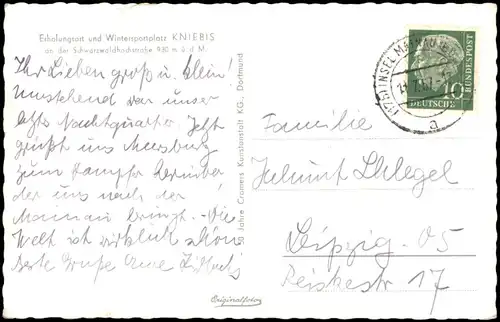 Erholungsort und Wintersportplatz KNIEBIS
an der Schwarzwaldhochstraße 930 m ü. d. M.
Ihr Lieben groß u. klein!
Umstehend war unser
letztes Nachtquartier. Jetzt
grüßt uns Meersburg
zum Dampfer herüber
der uns nach der
Mainau bringt. Die
Welt ist wirklich schön
Beste Grüße Eure
50 Jahre Cramers Kunstanstalt KG., Dortmund
Originalfoto
INSEL MAINAU
a
10
DEUTSCHE
BUNDESPOST
Familie
Helmut Schlegel
Leipzig O5
Reiskestr 17